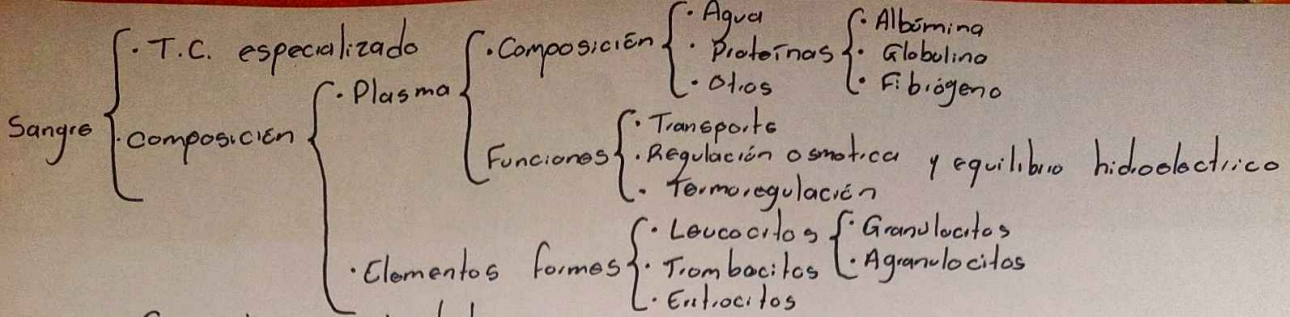 Sangre
· T.C. especializado
· Composición
· Plasma
· Composición
· Agua
· Proteínas
· Albúmina
· Globulina
· Fibiógeno
· Otros
Funciones
· Transporte
· Regulación osmotica y equilibrio hidroelectrico
· Termoregulación
· Elementos formes
· Leucocitos
· Granulocitos
· Agranulocitos
· Trombocitos
· Eritrocitos